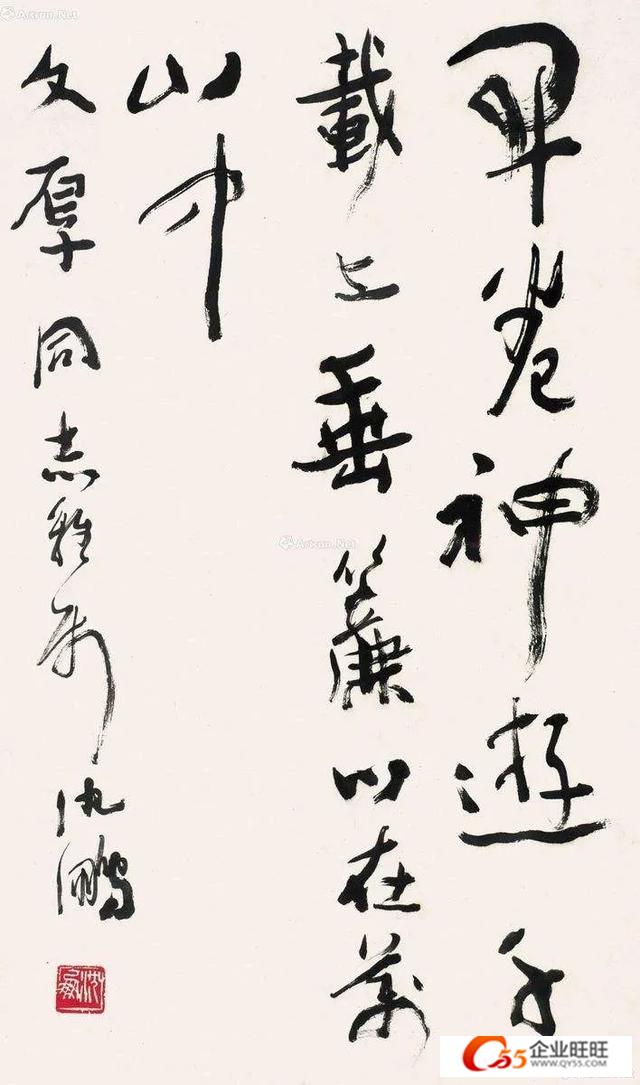 開卷神遊千
載上垂簾心在萬
山中
文厚同志雅屬
沈鵬
Artron.Net
Artron.Net
55企业旺旺
WWW.QY55.COM